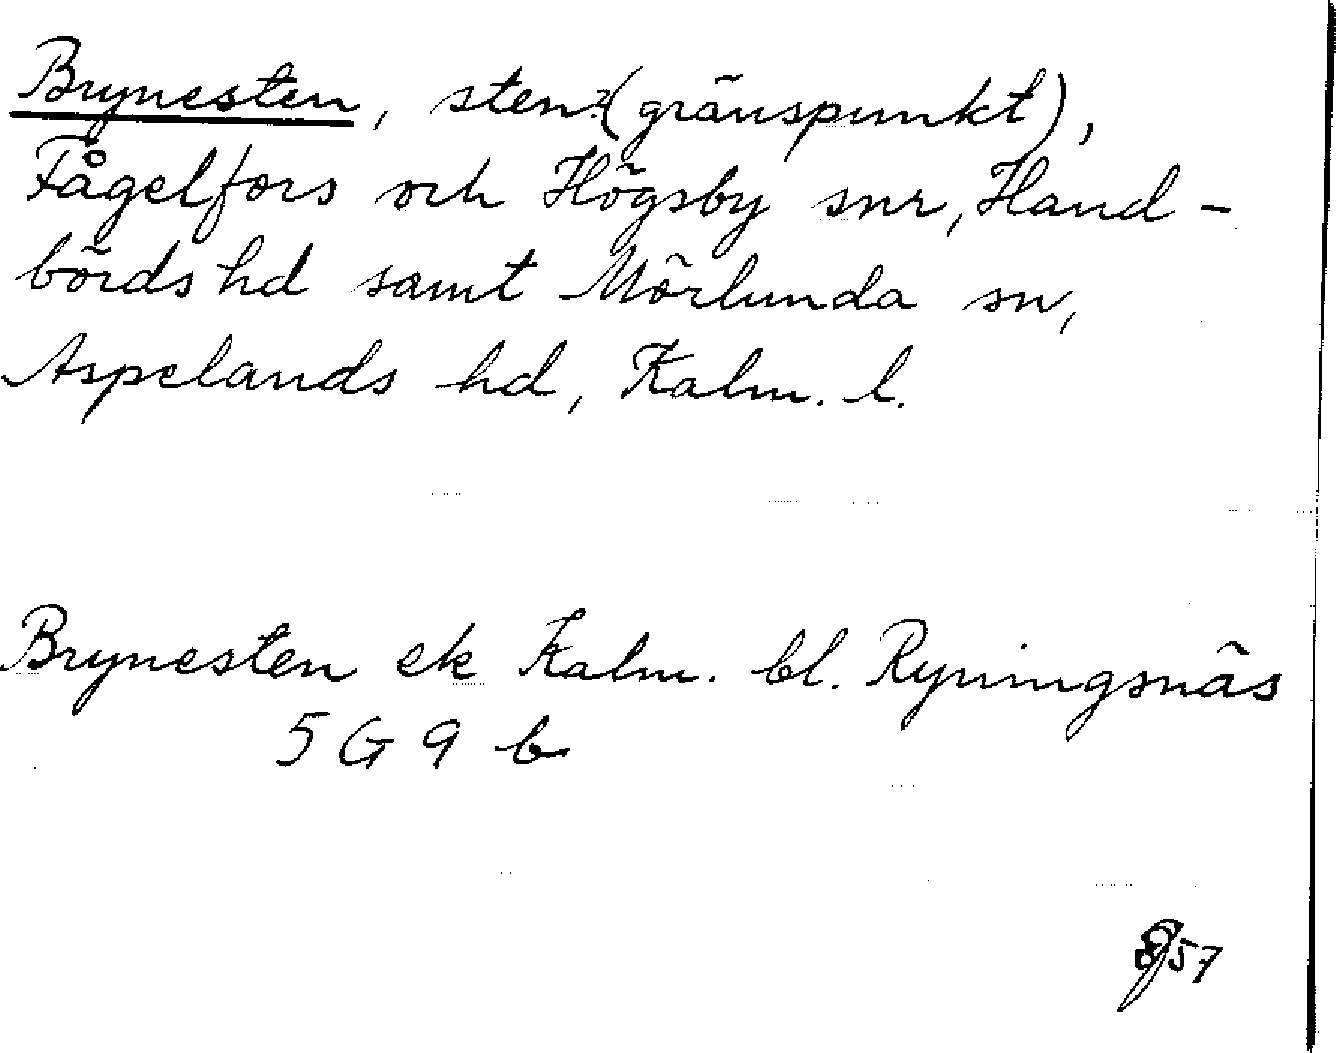 Brynesten, sten? (gränspunkt),
Fågelfors och Högsby snr, Hand-
börds hd samt Mörlunda sn,
Aspelands hd, Kalm. l.
Brynesten ek Kalm. bl. Ryningsnäs
5 G 9 b
57